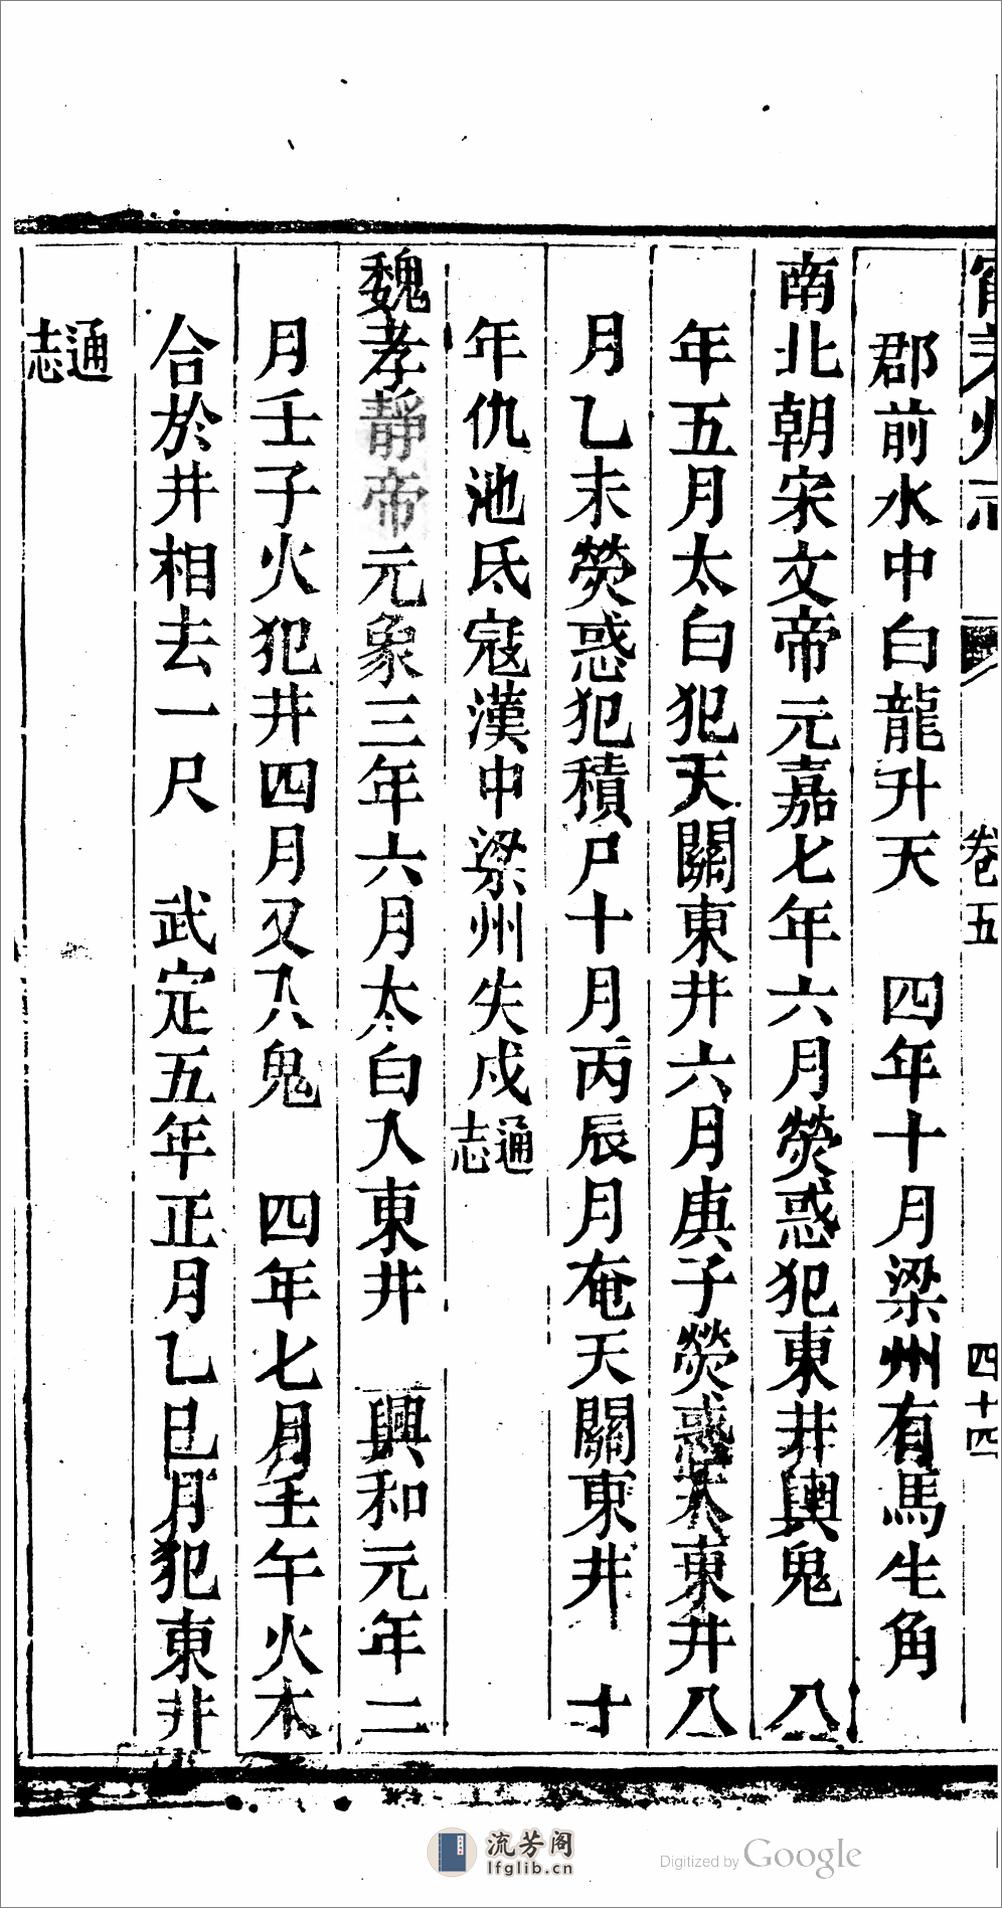 卷五
四十四
郡前水中白龍升天　四年十月梁州有馬生角
南北朝宋文帝元嘉七年六月熒惑犯東井輿鬼　八
年五月太白犯天關東井六月庚子熒惑入東井八
月乙未熒惑犯積尸十月丙辰月奄天關東井　十
年仇池氐寇漢中梁州失戍通志
魏孝靜帝元象三年六月太白入東井　興和元年二
月壬子火犯井四月又入鬼　四年七月壬午火木
合於井相去一尺　武定五年正月乙巳月犯東井
通志
流芳阁
lfglib.cn
Digitized by Google